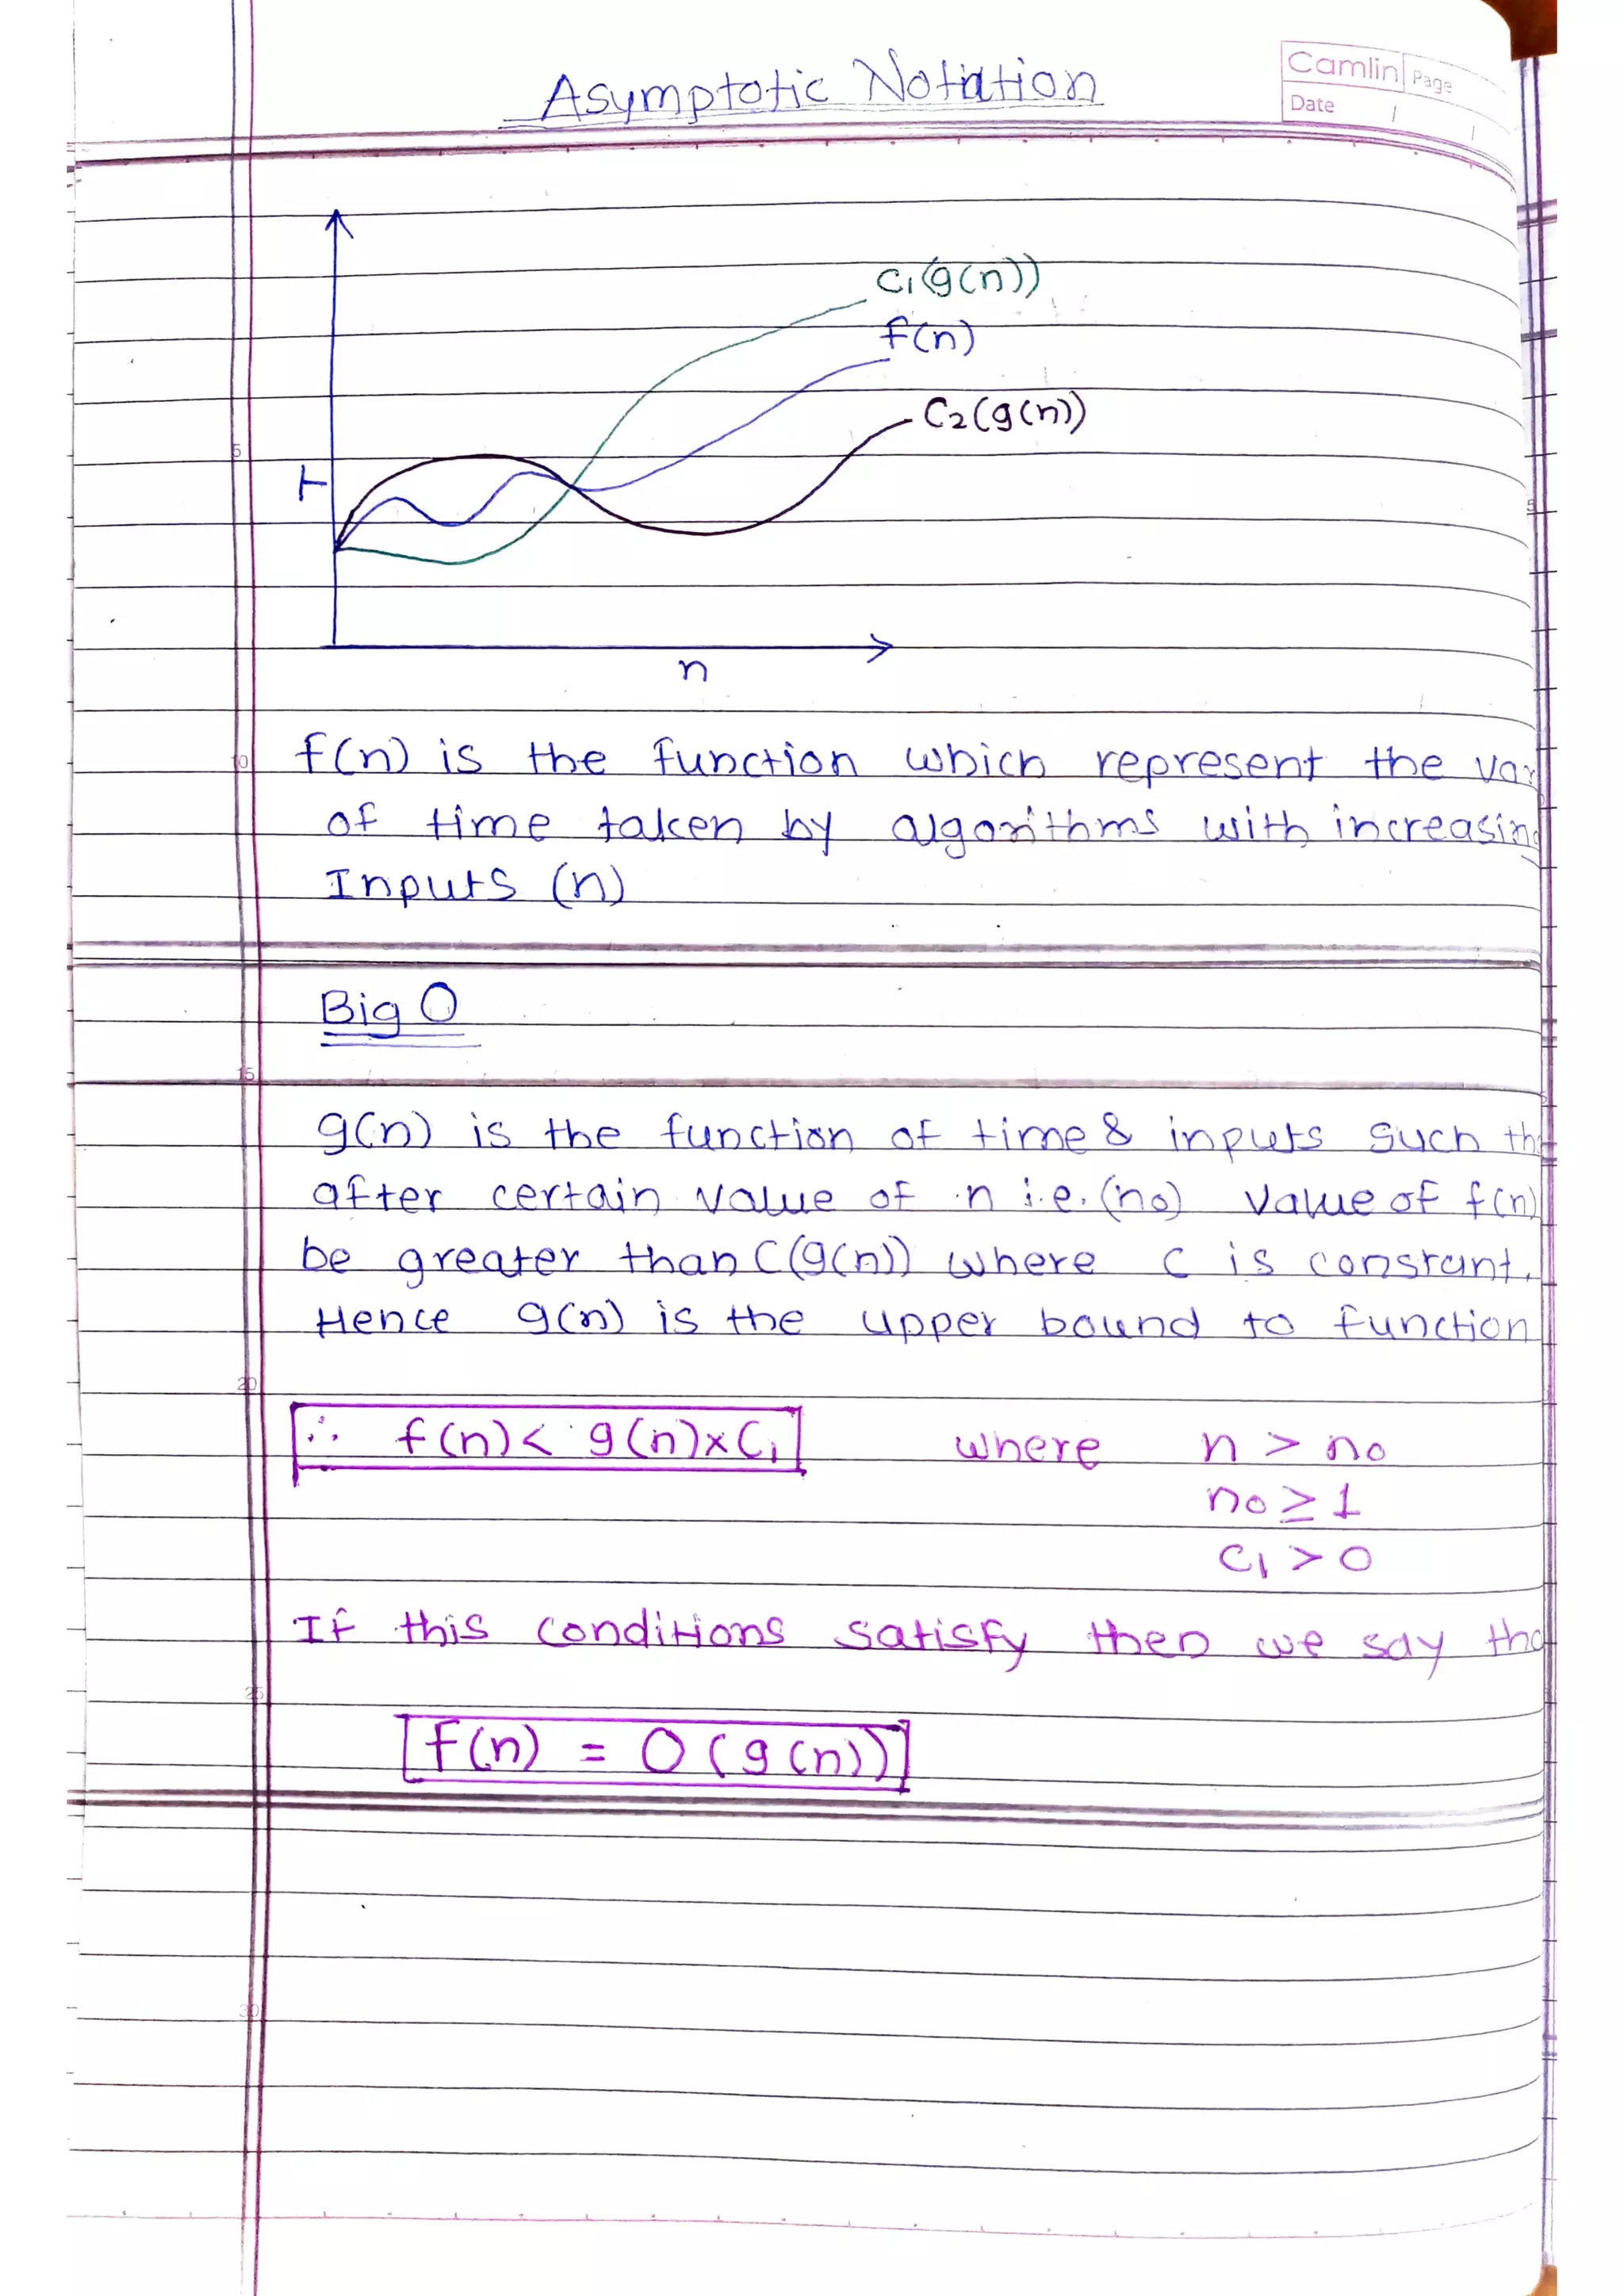 Asymptotic Notation
Camlin Page
Date / /
C₁(g(n))
f(n)
C₂(g(n))
5
T
5
n
10 f(n) is the function which represent the var
of time taken by algorithms with increasing
Inputs (n)
Big O
15
g(n) is the function of time & inputs such th
after certain value of n i.e. (n₀) value of f(n)
be greater than C(g(n)) where C is constant.
Hence g(n) is the upper bound to function
20
∴ f(n) < g(n)×C₁ where n > n₀
n₀ ≥ 1
C₁ > 0
If this conditions satisfy then we say tha
25
f(n) = O(g(n))
30